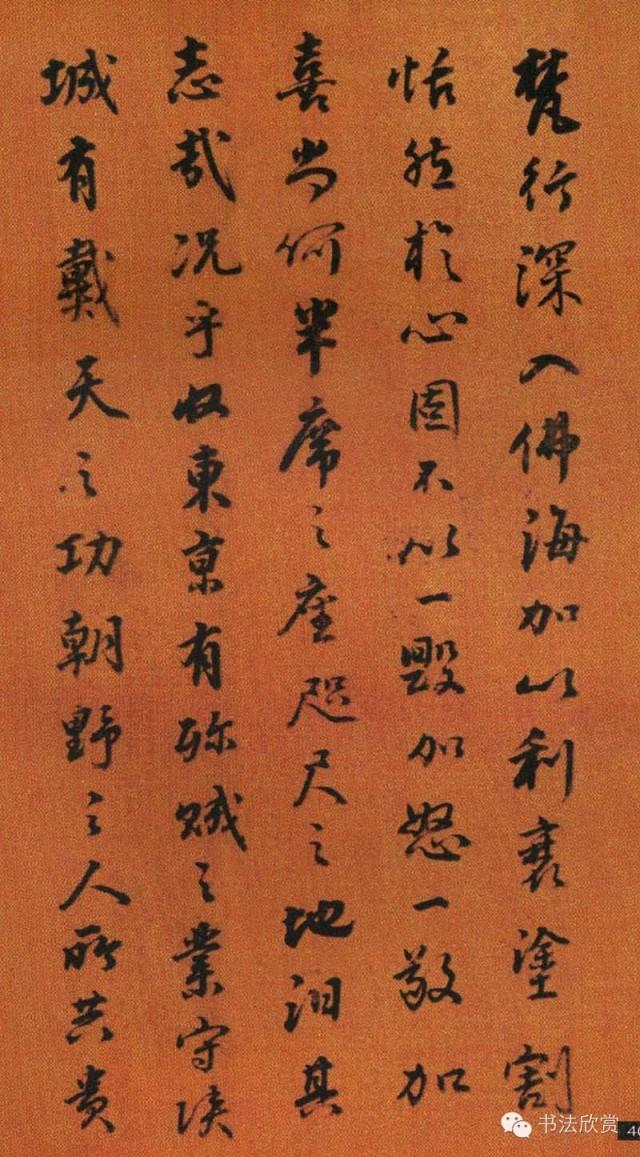 梵行深入佛海加以利衰塗割
恬然於心固不以一毀加怒一敬加
喜尚何半席之座咫尺之地汩其
志哉况乎收東京有殄賊之業守陝
城有戴天之功朝野之人所共貴
书法欣赏